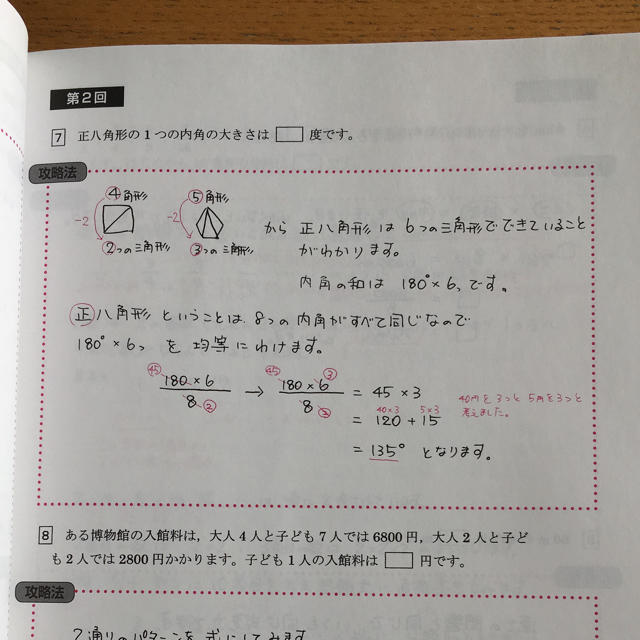 第2回
7 正八角形の1つの内角の大きさは□度です。
攻略法
④角形 ⑤角形
-2 -2
②つの三角形 ③つの三角形
から 正八角形は 6つの三角形でできていること
がわかります。
内角の和は 180°×6 です。
㊣八角形 ということは、8つの内角がすべて同じなので
180°×6 を 均等にわけます。
㊺ ㊺ ③
180×6 → 180×6 = 45×3
8 ② 8 ②
40円を3つと 5円を3つと
考えました。
40×3 5×3
= 120 + 15
= 135° となります。
8 ある博物館の入館料は，大人4人と子ども7人では6800円，大人2人と子ど
も2人では2800円かかります。子ども1人の入館料は□円です。
攻略法
2通りのパターンを式にしてみます